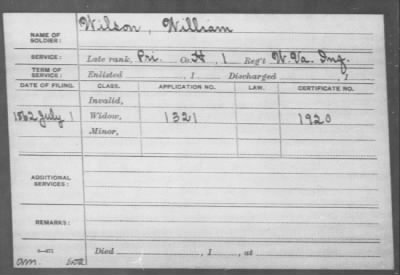 NAME OF SOLDIER: Wilson, William
SERVICE: Late rank, Pri. Co. H, 1 Reg't W. Va. Inf.
TERM OF SERVICE: Enlisted , 1 Discharged , 1
DATE OF FILING. CLASS. APPLICATION NO. LAW. CERTIFICATE NO.
Invalid,
1862 July 1 Widow, 1321 1920
Minor,
ADDITIONAL SERVICES:
REMARKS:
Died , 1 , at
am.